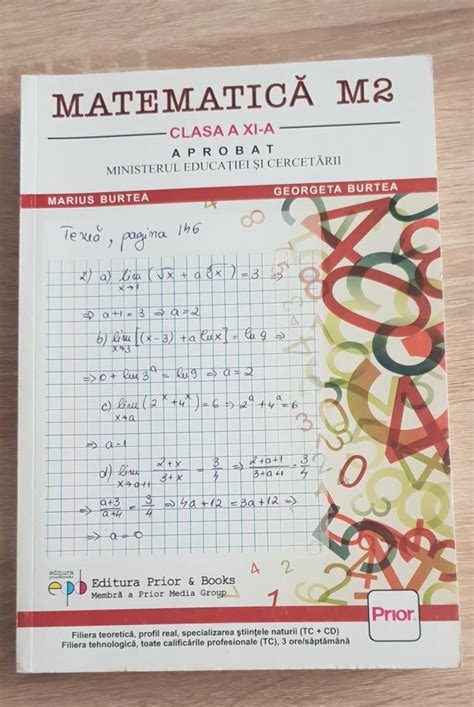 MATEMATICĂ M2
CLASA A XI-A
APROBAT
MINISTERUL EDUCAȚIEI ȘI CERCETĂRII
MARIUS BURTEA
GEORGETA BURTEA
Temă, pagina 146
2) a) lim x→1 (√x + a ∛x) = 3 ⇒
⇒ a+1 = 3 ⇒ a = 2
b) lim x→3 [(x-3) + a ln x] = ln 9 ⇒
⇒ 0 + ln 3^a = ln 9 ⇒ a = 2
c) lim x→a (2^x + 4^x) = 6 ⇒ 2^a + 4^a = 6
⇒ a=1
d) lim x→a+1 (2+x)/(3+x) = 3/4 ⇒ (2+a+1)/(3+a+1) = 3/4
⇒ (a+3)/(a+4) = 3/4 ⇒ 4a+12 = 3a+12 ⇒
⇒ a=0
editura
epb Editura Prior & Books
Membră a Prior Media Group
Prior
Filiera teoretică, profil real, specializarea științele naturii (TC + CD)
Filiera tehnologică, toate calificările profesionale (TC), 3 ore/săptămână